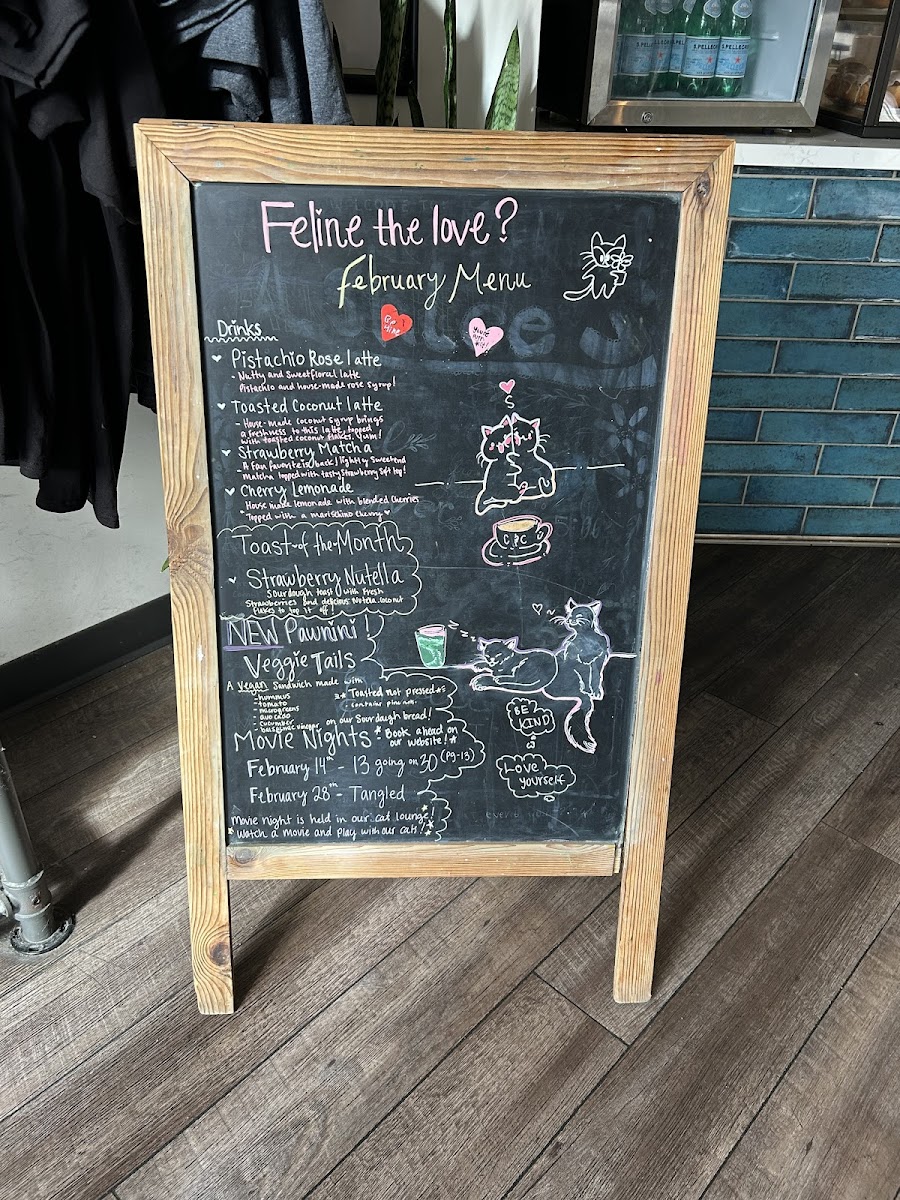 S.PELLEGRINO
Feline the love?
February Menu
Be Mine
Drinks
Pistachio Rose latte
- Nutty and Sweet floral latte
Pistachio and house-made rose syrup!
Toasted Coconut latte
- House-made coconut syrup brings
a freshness to this latte, topped
with toasted coconut flakes. Yum!
Strawberry Matcha
- A fan favorite is back! lightly Sweetend
Matcha topped with tasty Strawberry Soft top!
Cherry Lemonade
House made lemonade with blended Cherries
- Topped with a marischino Cherry
Toast-of-the-Month
Strawberry Nutella
Sourdough toast with Fresh
Strawberries and delicious Nutella. coconut
flakes to top it off!
CPC
NEW Pawnini!
Veggie Tails
A vegan Sandwich made with
- hummus
- tomato
- microgreens
- avocado
- cucumber
- balsamic vinegar on our Sourdough bread!
** Toasted not pressed **
- contains pine nuts
Movie Nights * - Book ahead on
our website! *
February 14th - 13 going on 30 (PG-13)
February 28th - Tangled
Movie night is held in our cat lounge!
* Watch a movie and play with our cats! *
z z z
BE
KIND
Love
yourself